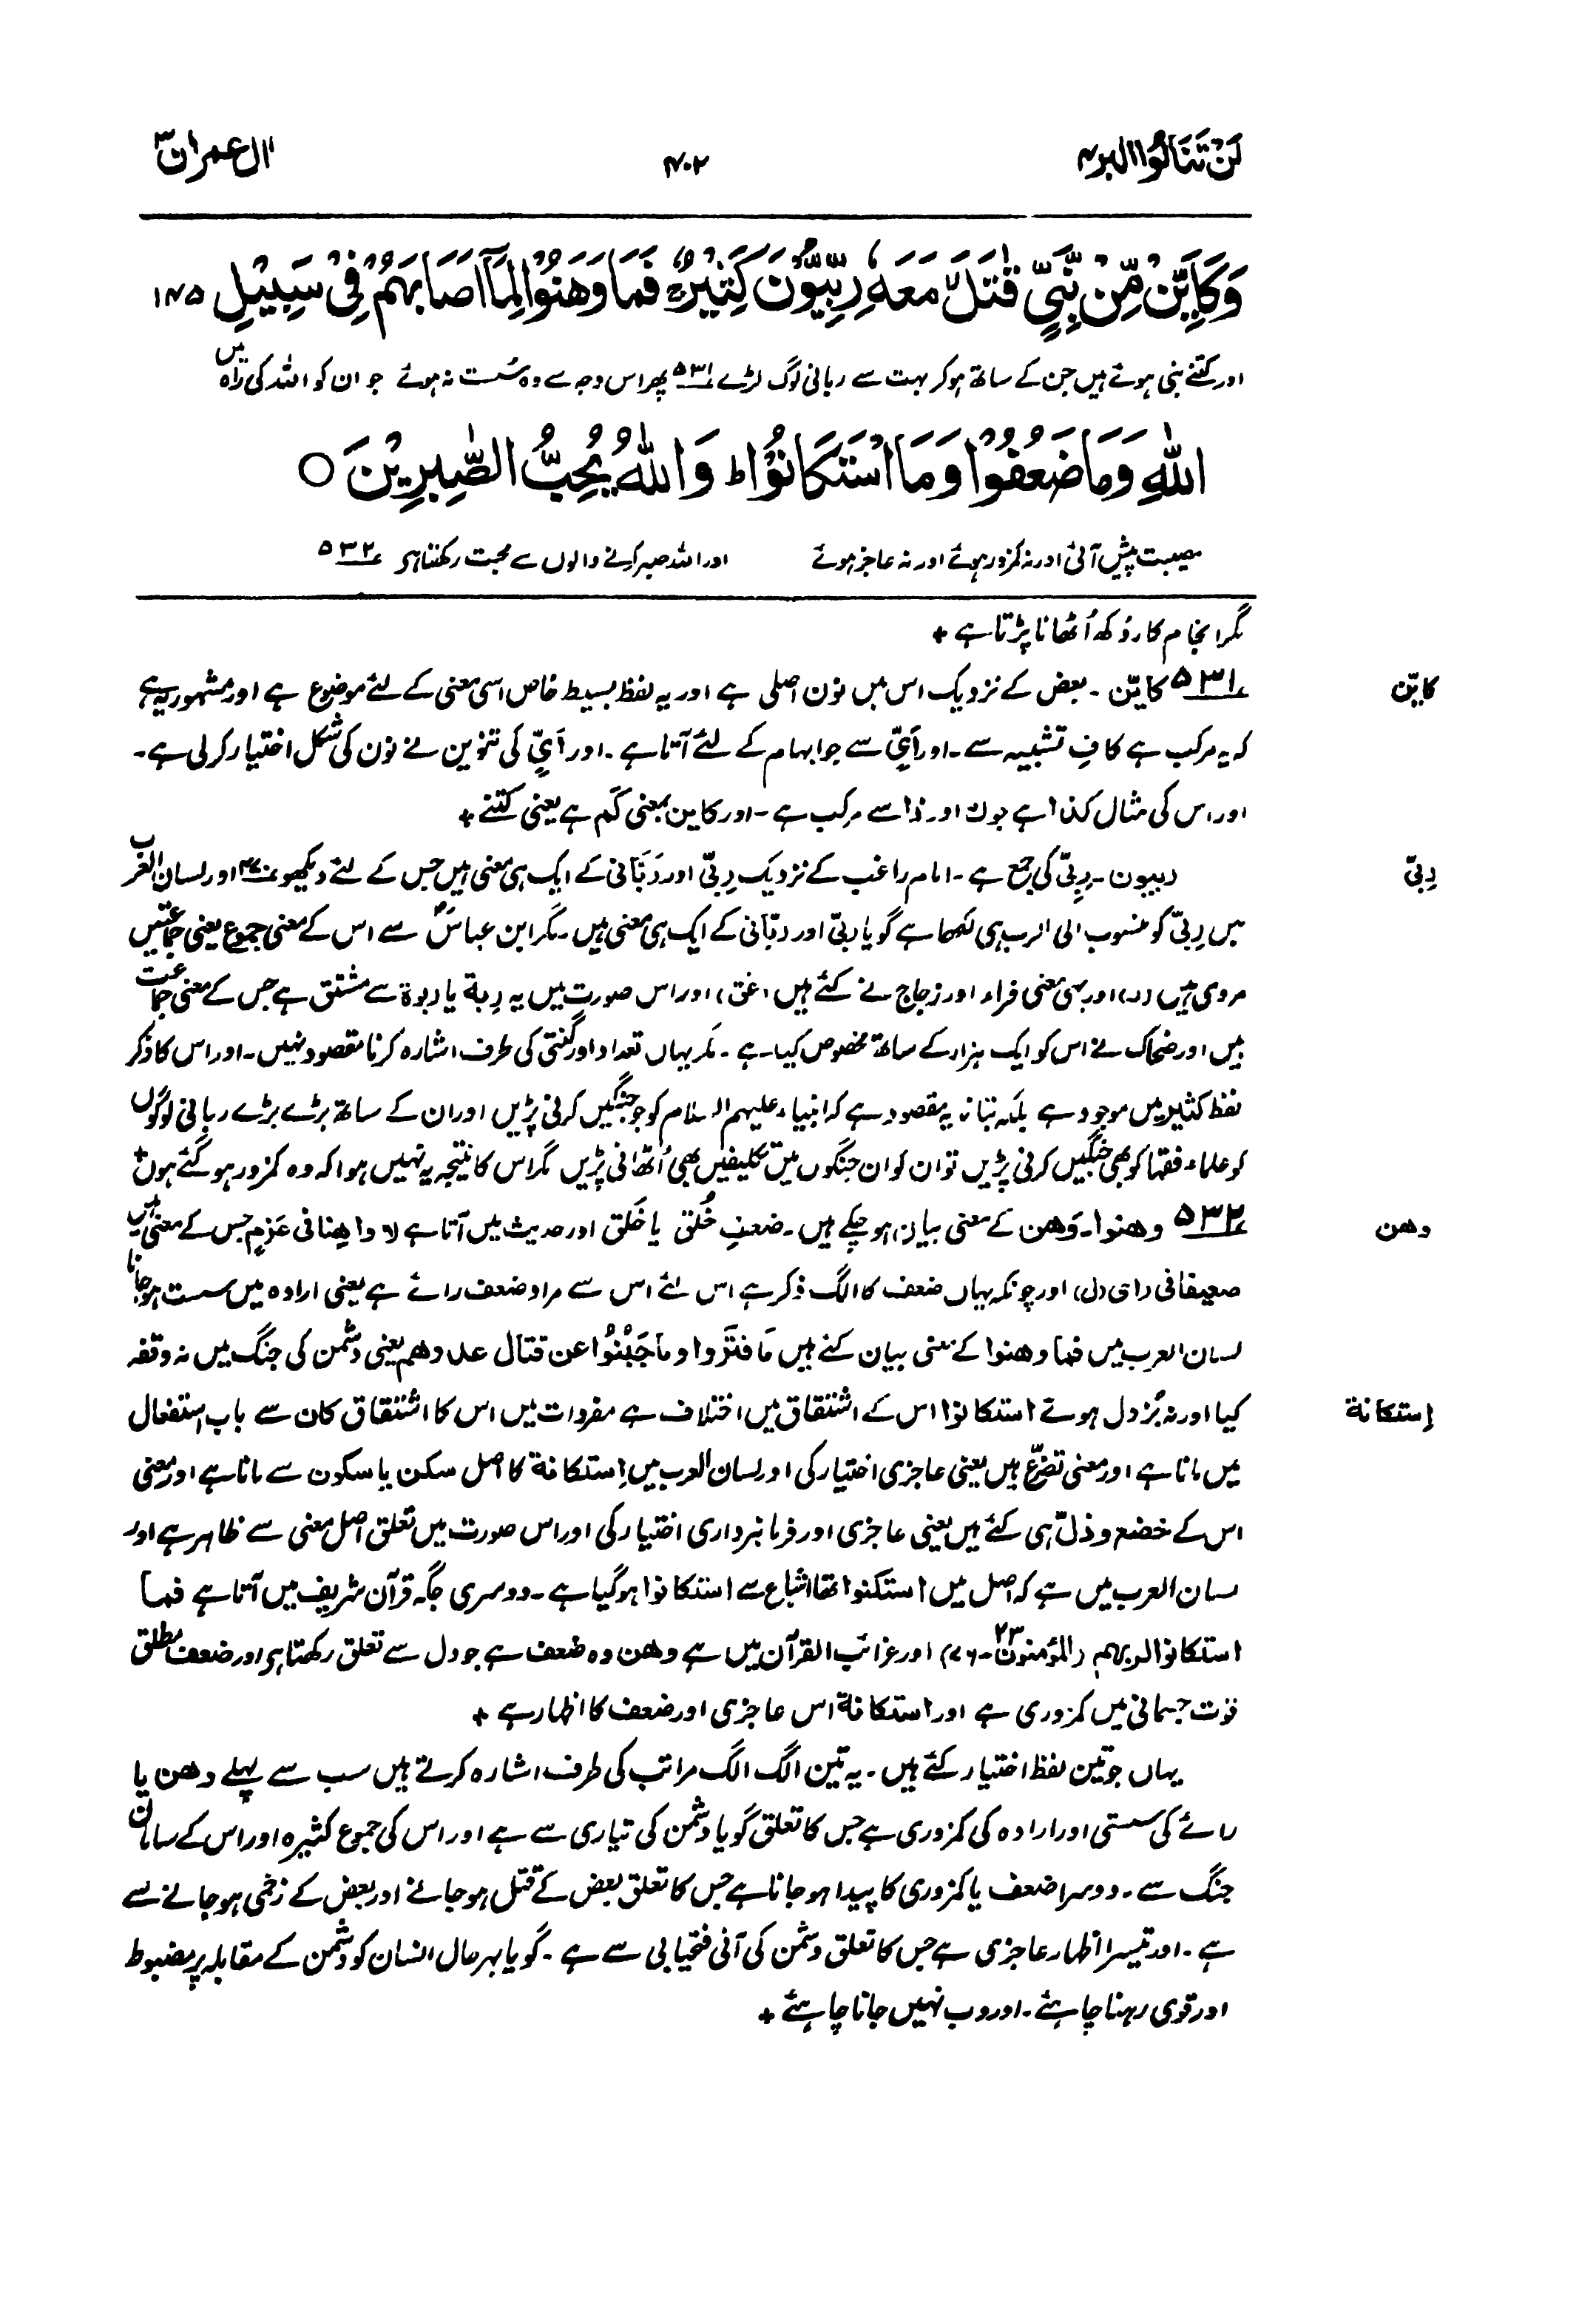 لَنْ تَنَالُوا البر ۴
۴۰۲
اٰل عمران ۳
وَكَاَيِّنْ مِّنْ نَّبِيٍّ قٰتَلَ مَعَهٗ رِبِّيُّوْنَ كَثِيْرٌ فَمَا وَهَنُوْا لِمَآ اَصَابَهُمْ فِيْ سَبِيْلِ ۱۴۵
اور کتنے نبی ہوئے ہیں جن کے ساتھ ہو کر بہت سے ربانی لوگ لڑے ۵۳۱ پھر اس وجہ سے وہ سُست نہ ہوئے جو ان کو اللہ کی راہ میں
اللّٰهِ وَمَا ضَعُفُوْا وَمَا اسْتَكَانُوْا ط وَاللّٰهُ يُحِبُّ الصّٰبِرِيْنَ ○
مصیبت پیش آئی اور نہ کمزور ہوئے اور نہ عاجز ہوئے اور اللہ صبر کرنے والوں سے محبت رکھتا ہی ۵۳۲
مگر انجام کار دُکھ اُٹھانا پڑتا ہے +
کایّن
۵۳۱ کایّن ۔ بعض کے نزدیک اس میں نون اصلی ہے اور یہ لفظ بسیط خاص اسی معنی کے لئے موضوع ہے اور مشہور یہ ہے
کہ یہ مرکب ہے کافِ تشبیہ سے ۔ اور اَیٍّ سے جو ابہام کے لئے آتا ہے ۔ اور اَیٍّ کی تنوین نے نون کی شکل اختیار کر لی ہے ۔
اور اس کی مثال کذا ہے جو ك اور ذا سے مرکب ہے ۔ اور کاین بمعنی کَم ہے یعنی کتنے +
رِبّیّ
ربیون ۔ رِبّیّ کی جمع ہے ۔ امام راغب کے نزدیک رِبّیّ اور رَبَّانی کے ایک ہی معنی ہیں جس کے لئے دیکھو اور لسان العرب
میں رِبّیّ کو منسوب الی الرب ہی لکھا ہے گویا ربّی اور ربّانی کے ایک ہی معنی ہیں ۔ مگر ابن عباسؓ سے اس کے معنی جموع یعنی جماعتیں
مروی ہیں (ر) اور یہی معنی فراء اور زجاج نے کئے ہیں (غق) اور اس صورت میں یہ رِبة یا ربوة سے مشتق ہے جس کے معنی جماعت
ہیں اور ضحاک نے اس کو ایک ہزار کے ساتھ مخصوص کیا ہے ۔ مگر یہاں تعداد اور گنتی کی طرف اشارہ کرنا مقصود نہیں ۔ اور اس کا ذکر
لفظ کثیر میں موجود ہے بلکہ بتانا یہ مقصود ہے کہ انبیاء علیہم السلام کو جو جنگیں کرنی پڑیں اور ان کے ساتھ بڑے بڑے ربانی لوگوں
کو علماء فقہا کو بھی جنگیں کرنی پڑیں تو ان کو ان جنگوں میں تکلیفیں بھی اُٹھانی پڑیں مگر اس کا نتیجہ یہ نہیں ہوا کہ وہ کمزور ہو گئے ہوں +
وهن
۵۳۲ وهنوا ۔ وَهن کے معنی بیان ہو چکے ہیں ۔ ضعفِ خُلق یا خَلق اور حدیث میں آتا ہے لا واهِنا فی عَزمٍ جس کے معنی ہیں
ضعیفا فی رای (ل) اور چونکہ یہاں ضعف کا الگ ذکر ہے اس لئے اس سے مراد ضعف رائے ہے یعنی ارادہ میں سست ہو جانا
لسان العرب میں فما وهنوا کے معنی بیان کئے ہیں مَا فَتَّرُوا و ما جَبُنُوا عن قتال عدوهم یعنی دشمن کی جنگ میں نہ وقفہ
اِستكانة
کیا اور نہ بُزدل ہوتے استكانوا اس کے اشتقاق میں اختلاف ہے مفردات میں اس کا اشتقاق کان سے باب استفعال
میں مانا ہے اور معنی تضرّع ہیں یعنی عاجزی اختیار کی اور لسان العرب میں اِستكانة کا اصل سکن یا سکون سے مانا ہے اور معنی
اس کے خضع و ذلّ ہی کئے ہیں یعنی عاجزی اور فرمانبرداری اختیار کی اور اس صورت میں تعلق اصل معنی سے ظاہر ہے اور
لسان العرب میں ہے کہ اصل میں استکنوا تھا اشباع سے استكانوا ہو گیا ہے ۔ دوسری جگہ قرآن شریف میں آتا ہے فما
استكانوا لربهم (المؤمنونؔ ۲۳ ۔ ۷۶) اور غرائب القرآن میں ہے وهن وہ ضعف ہے جو دل سے تعلق رکھتا ہی اور ضعف مطلق
قوّت جسمانی میں کمزوری ہے اور استكانة اس عاجزی اور ضعف کا اظہار ہے +
یہاں جو تین لفظ اختیار کئے ہیں ۔ یہ تین الگ الگ مراتب کی طرف اشارہ کرتے ہیں سب سے پہلے وهن یا
رائے کی سستی اور ارادہ کی کمزوری ہے جس کا تعلق گویا دشمن کی تیاری سے ہے اور اس کی جموع کثیرہ اور اس کے سامان
جنگ سے ۔ دوسرا ضعف یا کمزوری کا پیدا ہو جانا ہے جس کا تعلق بعض کے قتل ہو جانے اور بعض کے زخمی ہو جانے سے
ہے ۔ اور تیسرا اظہار عاجزی ہے جس کا تعلق دشمن کی آنی فتحیابی سے ہے ۔ گویا بہر حال انسان کو دشمن کے مقابلہ پر مضبوط
اور قوی رہنا چاہئے ۔ اور دب نہیں جانا چاہئے +